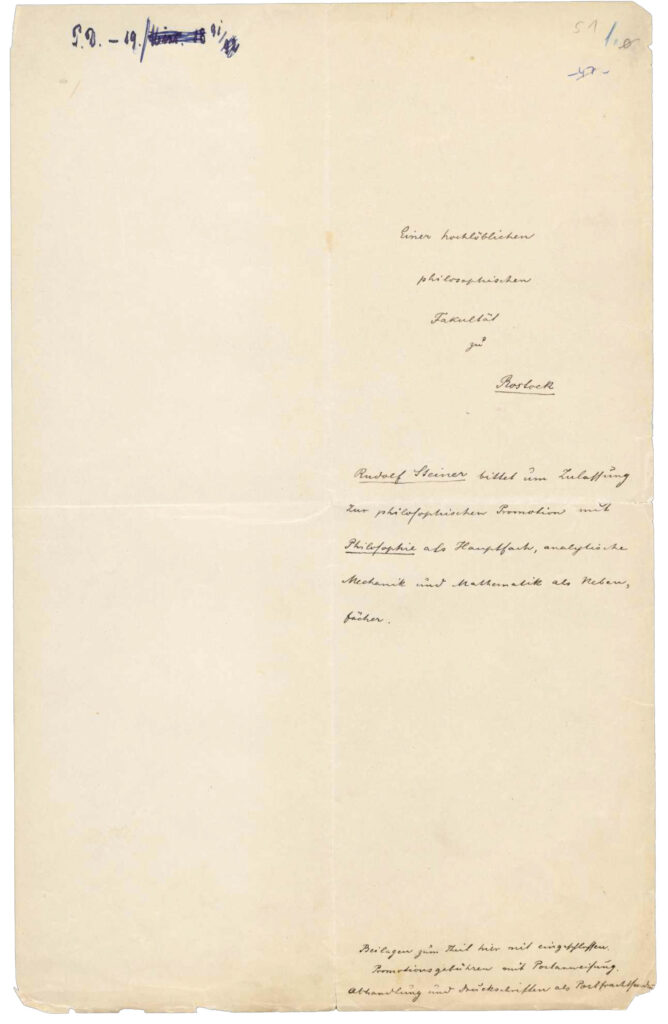 P. D. – 19.
51
Einer hochlöblichen
philosophischen
Fakultät
zu
Rostock
Rudolf Steiner bittet um Zulassung
zur philosophischen Promotion mit
Philosophie als Hauptfach, analytische
Mechanik und Mathematik als Neben-
fächer.
Beilagen zum Theil hier mit eingeschlossen.
Promotionsgebühren mit Postanweisung.
Abhandlung und Druckschriften als